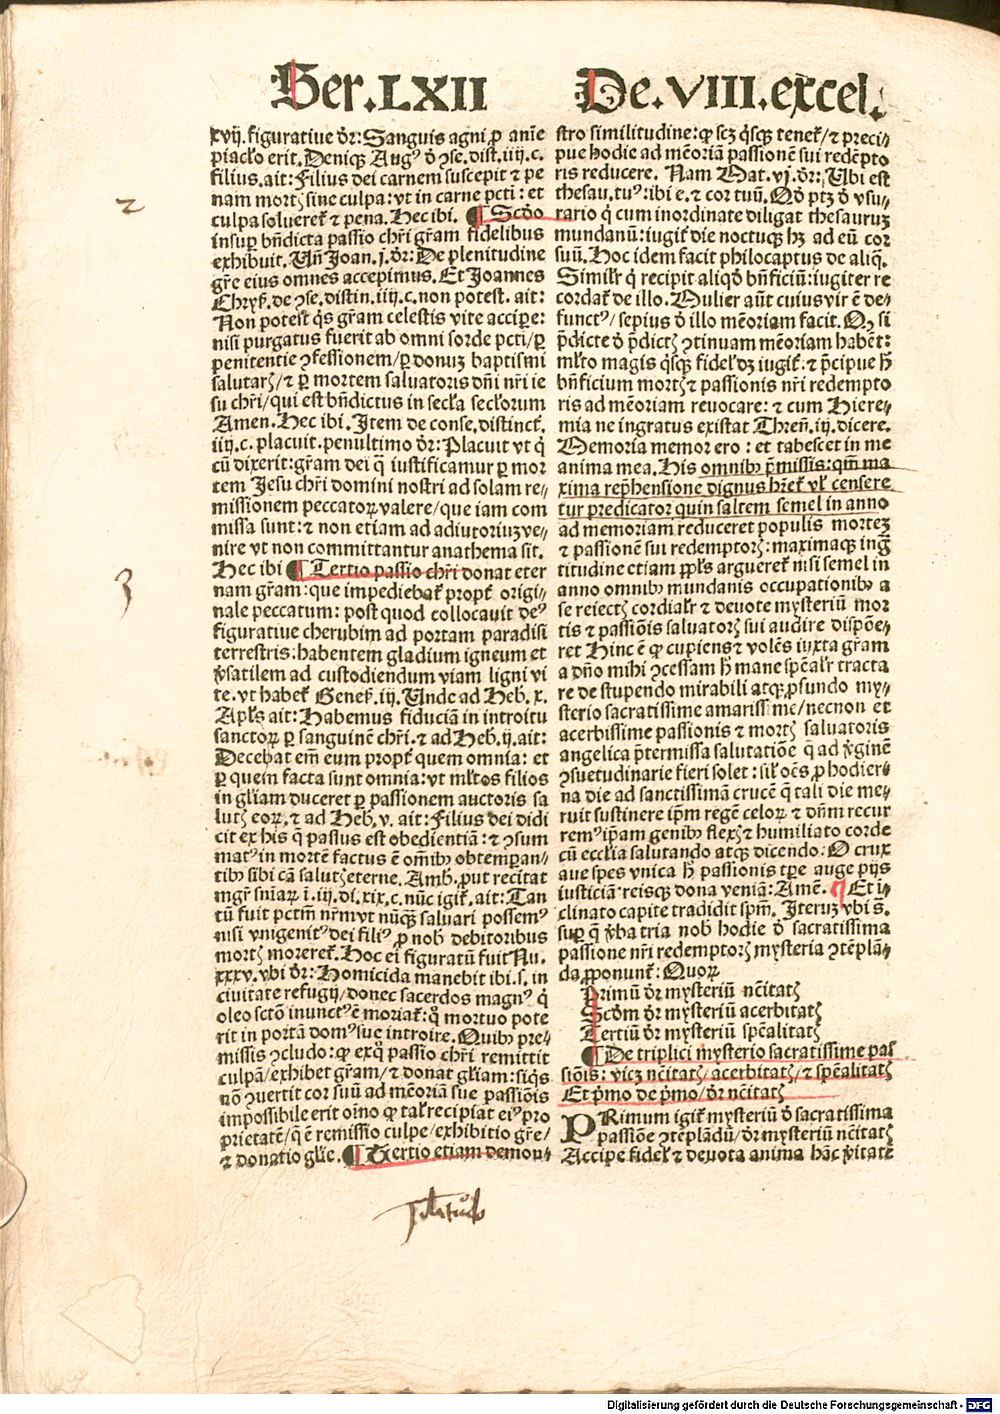 Ser.LXII
De.VIII.excel.
xvij. figuratiue dr̄: Sanguis agni ꝓ anīe
piacĺo erit. Deniqꝫ Augꝰ ď ꝯse. dist. iiij. c.
filius. ait: Filius dei carnem suscepit ⁊ pe
nam mortꝭ sine culpa: vt in carne pcti: et
culpa solueret̛ ⁊ pena. Hec ibi. ¶ Scďo
insuꝑ bn̄dicta passio chr̄i gr̄am fidelibus
exhibuit. Vn̄ Joan. j. dr̄: De plenitudine
gr̄e eius omnes accepimus. Et Joannes
Chryſ. de ꝯse. distin. iiij. c. non potest. ait:
Non potest q̇s gr̄am celestis vite accipere:
nisi purgatus fuerit ab omni sorde pcti/ꝑ
penitentie ꝯfessionem/ꝑ donuꝫ baptismi
salutarꝭ/⁊ ꝑ mortem saluatoris dn̄i nr̄i ie
su chr̄i/qui est bn̄dictus in secĺa secĺorum
Amen. Hec ibi. Item de conse. distinct̛.
iiij. c. placuit. penultimo dr̄: Placuit vt q̇
cū dixerit: gr̄am dei q̄ iustificamur ꝑ mor
tem Jesu chr̄i domini nostri ad solam re⸗
missionem peccatoꝝ valere/que iam com
missa sunt: ⁊ non etiam ad adiutoriuꝫ ve⸗
nire vt non committantur anathema sit.
Hec ibi ¶ Tertio passio chr̄i donat eter
nam gr̄am: que impediebat̛ propt̛ origi⸗
nale peccatum: post quod collocauit deꝰ
figuratiue cherubim ad portam paradisi
terrestris: habentem gladium igneum et
v̓satilem ad custodiendum viam ligni vi
te. vt habet̛ Geneſ. iij. Unde ad Heb. x.
Apĺs ait: Habemus fiduciā in introitu
sanctoꝝ ꝑ sanguinē chr̄i. ⁊ ad Heb. ij. ait:
Decebat em̄ eum propt̛ quem omnia: et
ꝑ quem facta sunt omnia: vt mĺtos filios
in gĺiam duceret ꝑ passionem auctoris sa
lutꝭ eoꝝ. ⁊ ad Heb. v. ait: Filius dei didi
cit ex his q̄ passus est obedientiā: ⁊ ꝯsum
matꝰ in mortē factus ē om̄ibꝰ obtemꝑan⸗
tibꝰ sibi cā salutꝭ eterne. Amb. ꝓut recitat
mgr̄ sniāꝝ i. iij. di. xix. c. nūc igit̛. ait: Tan
tū fuit pctm̄ nr̄m vt nūqꝫ saluari possemꝰ
nisi vnigenitꝰ dei filiꝰ ꝓ nob̓ debitoribus
mortꝭ moreret̛. Hoc ei figuratū fuit Nu.
xxxv. vbi dr̄: Homicida manebit ibi. s. in
ciuitate refugij/donec sacerdos magnꝰ q̇
oleo sctō inunctꝰ ē moriat̛: q̊ mortuo pote
rit in portā domꝰ sue introire. Quibꝰ pre⸗
missis ꝯcludo: ꝙ exq̊ passio chr̄i remittit
culpā/exhibet gr̄am/⁊ donat gĺiam: siq̇s
nō ꝯuertit cor suū ad mēoriā sue passiōis
impossibile erit oīno ꝙ talʼ recipiat eiꝰ pro
prietatē/q̄ ē remissio culpe/exhibitio gr̄e/
⁊ donatio gĺie. ¶ Tertio etiam demon⸗
stro similitudine: ꝙ scꝫ q̇sqꝫ tenet̛/⁊ preci⸗
pue hodie ad mēoriā passionē sui redēpto
ris reducere. Nam Mat. vj. dr̄: Ubi est
thesau. tuꝰ: ibi e. ⁊ cor tuū. Qď ptꝫ ď vsu⸗
rario q̇ cum inordinate diligat thesauruꝫ
mundanū: iugit̛ die noctuqꝫ hꝫ ad eū cor
suū. Hoc idem facit philocaptus de aliq̄.
Similr̄ q̇ recipit aliqď bn̄ficiū: iugiter re
cordat̛ de illo. Mulier aūt cuius vir ē de⸗
functꝰ/sepius ď illo mēoriam facit. Qꝫ si
p̄dicte ď p̄dictꝭ ꝯtinuam mēoriam habēt:
mĺto magis q̇sqꝫ fidelʼ dꝫ iugit̛ ⁊ p̄cipue h̄
bn̄ficium mortꝭ ⁊ passionis nr̄i redempto
ris ad mēoriam reuocare: ⁊ cum Hiere⸗
mia ne ingratus existat Thren̄. iij. dicere.
Memoria memor ero: et tabescet in me
anima mea. His omnibꝰ p̄missis: qm̄ ma
xima rep̄hensione dignus hr̄et̛ vĺ censere
tur predicator quin saltem semel in anno
ad memoriam reduceret populis morteꝫ
⁊ passionē sui redemptorꝭ: maximaqꝫ ing̃
titudine etiam ppĺs argueret̛ nisi semel in
anno omnibꝰ mundanis occupationibꝰ a
se reiectꝭ cordialr̄ ⁊ deuote mysteriū mor
tis ⁊ passiōis saluatorꝭ sui audire dispōe⸗
ret Hinc ē ꝙ cupiens ⁊ volēs iuxta gram
a dn̄o mihi ꝯcessam h̄ mane spēalr̄ tracta
re de stupendo mirabili atqꝫ ꝓfundo my⸗
sterio sacratissime amarissime/necnon et
acerbissime passionis ⁊ mortꝭ saluatoris
angelica p̄termissa salutatiōe q̄ ad v̓ginē
ꝯsuetudinarie fieri solet: silʼ oēs ꝓ hodier⸗
na die ad sanctissimā crucē q̄ tali die me⸗
ruit sustinere ip̄m regē celoꝝ ⁊ dn̄m recur
remꝰ ip̄am genibꝰ flexꝭ ⁊ humiliato corde
cū eccĺia salutando atqꝫ dicendo: O crux
aue spes vnica h̄ passionis tp̄e auge pijs
iusticiā: reisqꝫ dona veniā: Amē. ¶ Et ī⸗
clinato capite tradidit spm̄. Iteruꝫ vbi s̄.
suꝑ q̄ v̓ba tria nob̓ hodie ď sacratissima
passione nr̄i redemptorꝭ mysteria ꝯtēplā⸗
da ꝓponunt̛: Quoꝝ
Primū dr̄ mysteriū nc̄itatꝭ
Scďm dr̄ mysteriū acerbitatꝭ
Tertiū dr̄ mysteriū spēalitatꝭ
¶ De triplici mysterio sacratissime pas
siōis: vicꝫ nc̄itatꝭ/acerbitatꝭ/⁊ spēalitatꝭ
Et p̄mo de p̄mo/dr̄ nc̄itatꝭ
PRimum igit̛ mysteriū ď sacratissima
passiōe ꝯtēplādū/dr̄ mysteriū nc̄itatꝭ
Accipe fidelʼ ⁊ deuota anima hāc v̓itatē
2
3
Digitalisierung gefördert durch die Deutsche Forschungsgemeinschaft - DFG